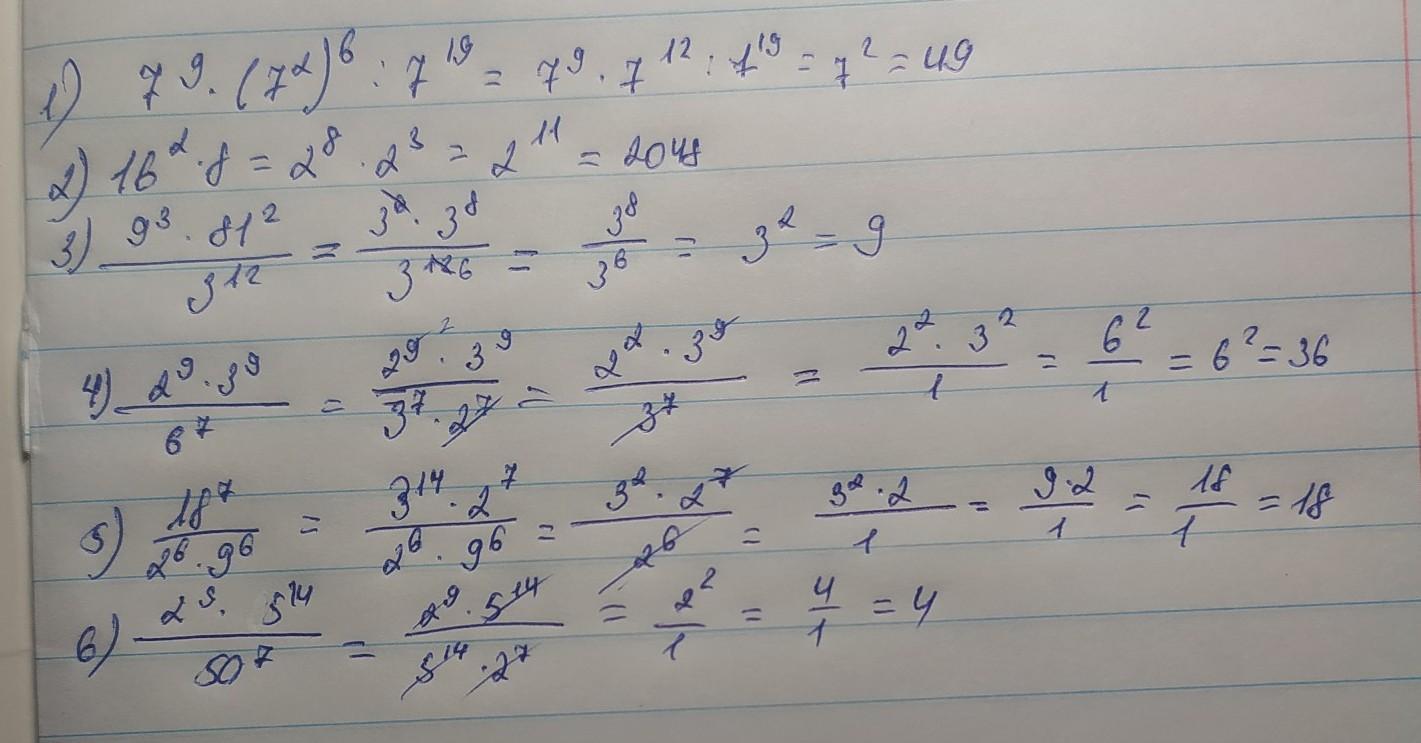 1) 7^9 · (7^2)^6 : 7^19 = 7^9 · 7^12 : 7^19 = 7^2 = 49
2) 16^2 · 8 = 2^8 · 2^3 = 2^11 = 2048
3) (9^3 · 81^2)/(3^12) = (3^6 · 3^8)/(3^12 6) = 3^8/3^6 = 3^2 = 9
4) (2^9 · 3^9)/(6^7) = (2^9 2 · 3^9)/(3^7 · 2^7) = (2^2 · 3^9)/(3^7) = (2^2 · 3^2)/1 = 6^2/1 = 6^2 = 36
5) 18^7/(2^6 · 9^6) = (3^14 · 2^7)/(2^6 · 9^6) = (3^2 · 2^7)/(2^6) = (3^2 · 2)/1 = (9 · 2)/1 = 18/1 = 18
6) (2^9 · 5^14)/(50^7) = (2^9 · 5^14)/(5^14 · 2^7) = 2^2/1 = 4/1 = 4